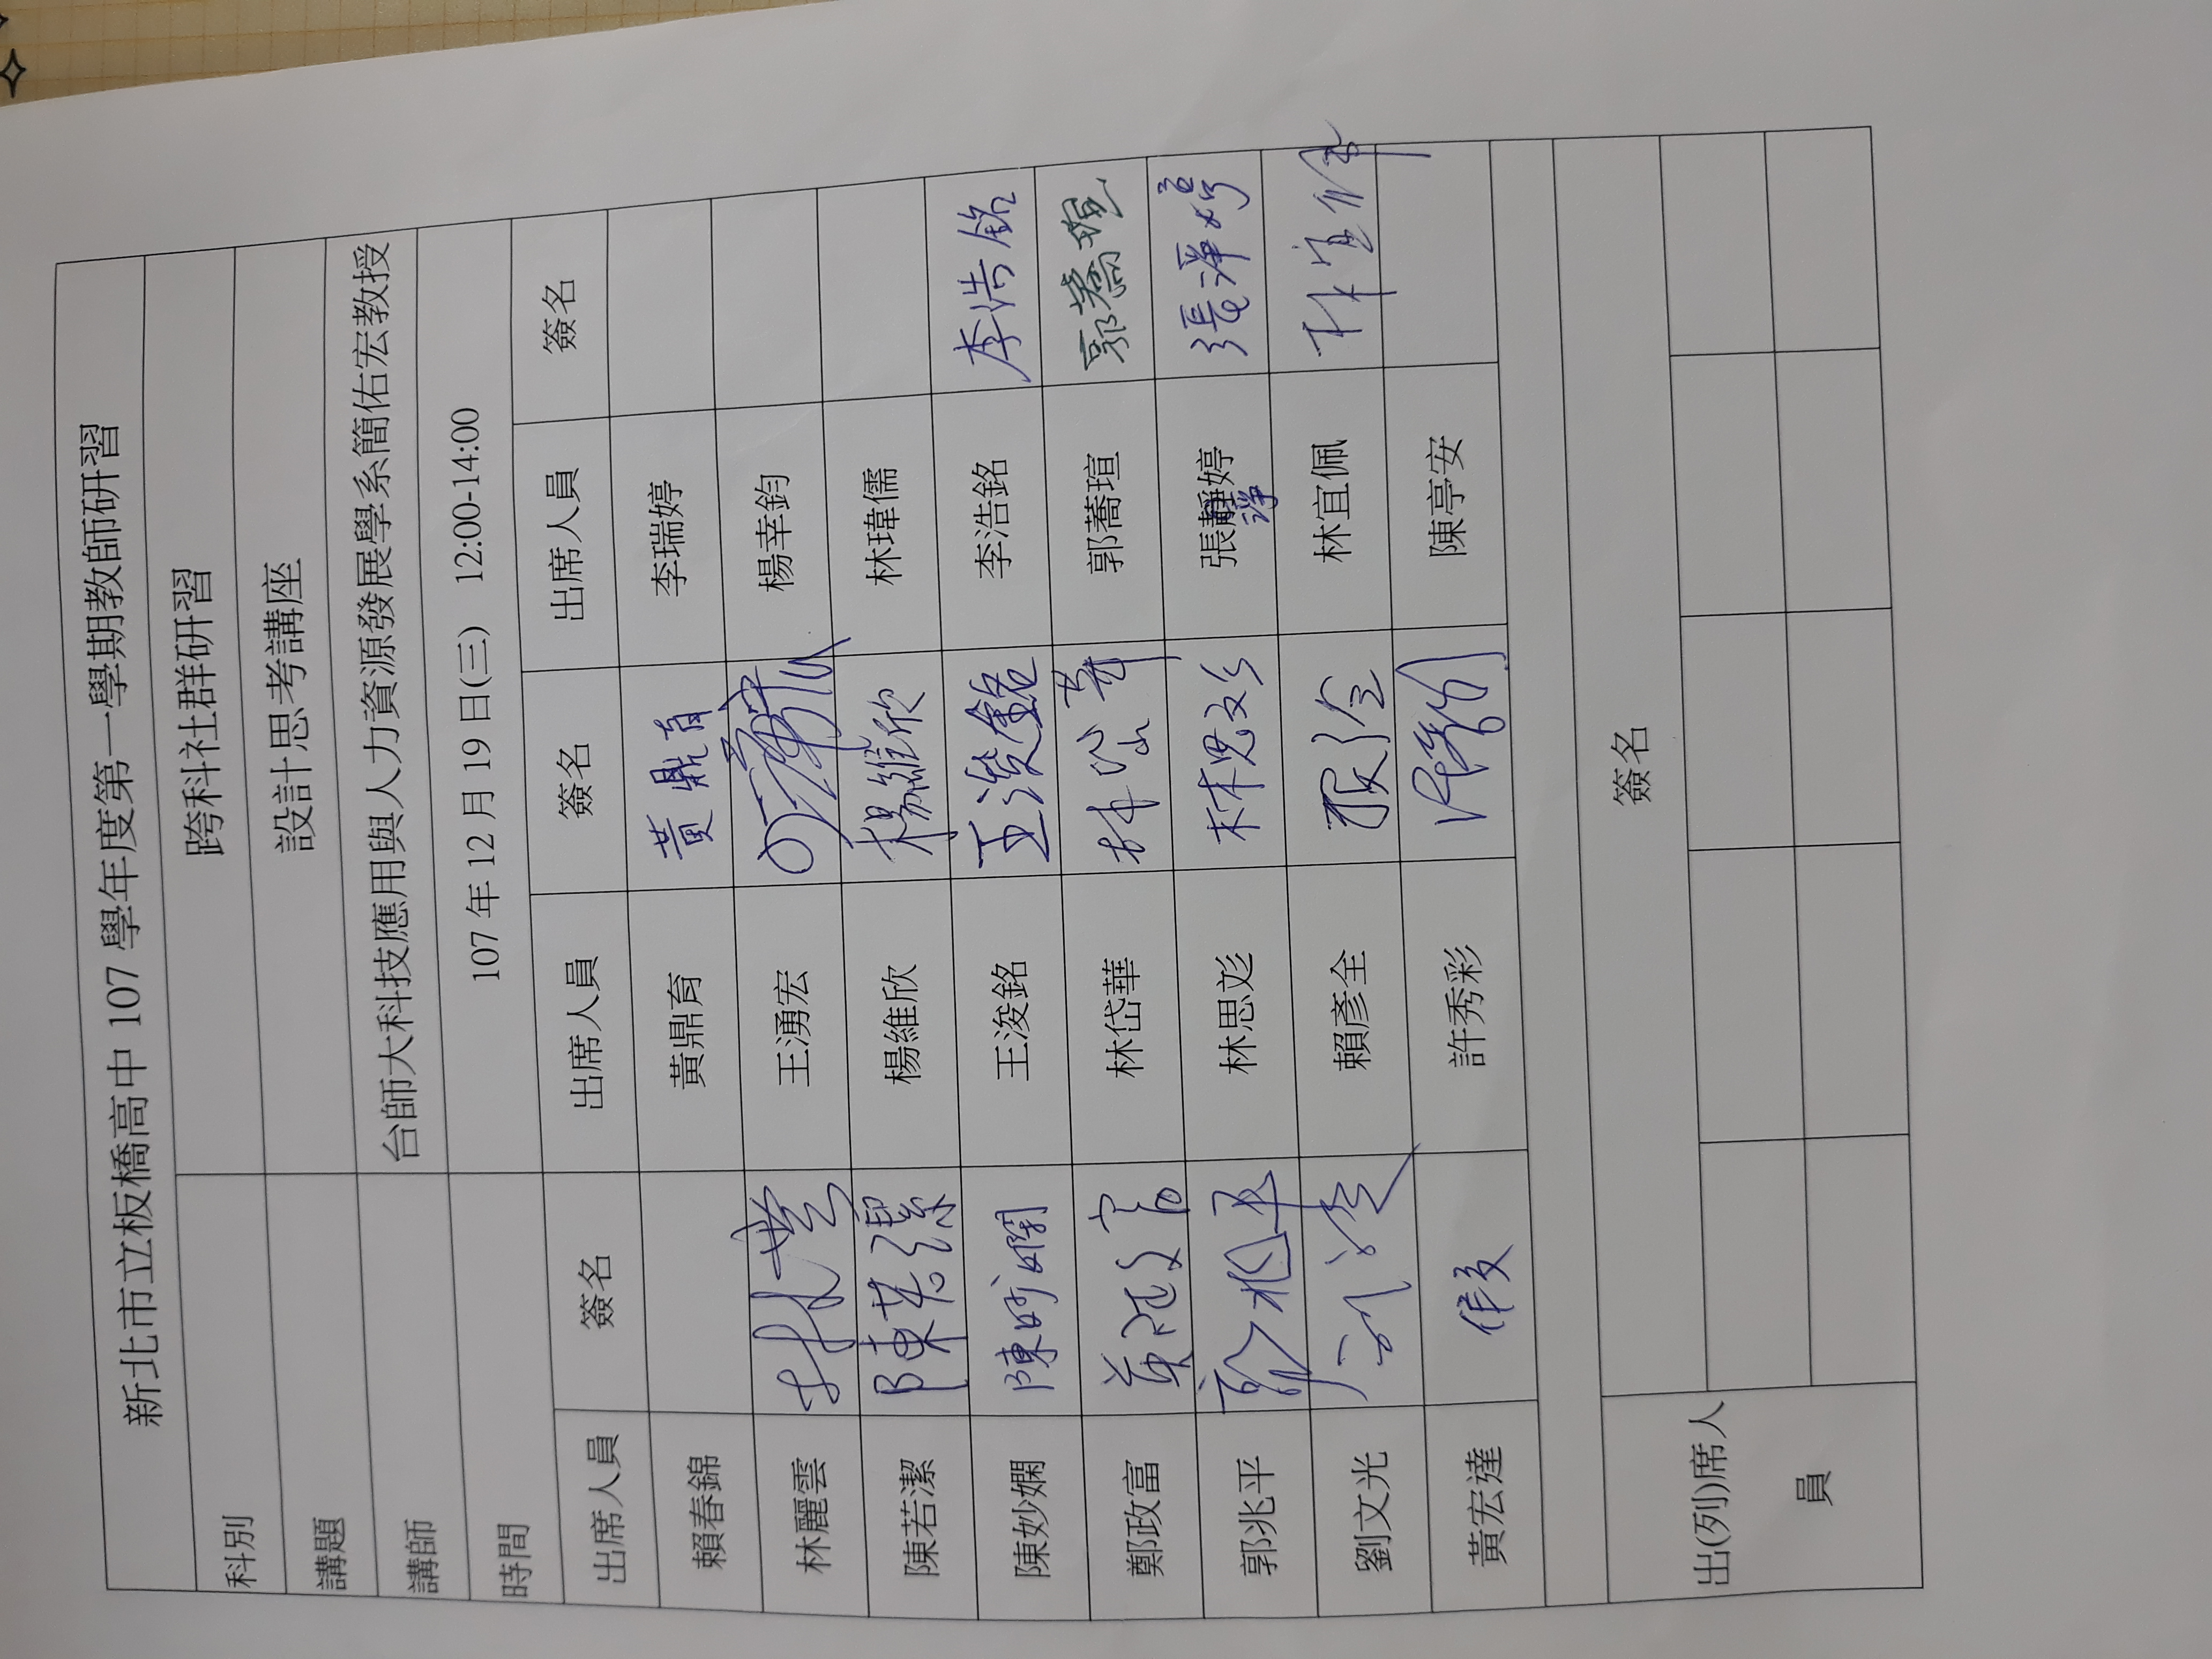 新北市立板橋高中 107 學年度第一學期教師研習
科別 跨科社群研習
講題 設計思考講座
講師 台師大科技應用與人力資源發展學系簡佑宏教授
時間 107 年 12 月 19 日(三) 12:00-14:00
出席人員 簽名 出席人員 簽名 出席人員 簽名
賴春錦 黃鼎育 黃鼎育 李瑞婷
林麗雲 王湧宏 楊幸鈞
陳若潔 陳若潔 楊維欣 楊維欣 林瑋儒
陳妙嫻 陳妙嫻 王浚銘 王浚銘 李浩銘 李浩銘
鄭政富 鄭政富 林岱華 林岱華 郭蕎瑄 郭蕎瑄
郭兆平 郭兆平 林思彣 林思彣 張靜婷 張淨婷
淨
劉文光 賴彥全 林宜佩 林宜佩
黃宏達 假 許秀彩 陳亭安
簽名
出(列)席人
員